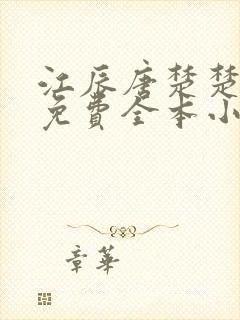 江辰唐楚楚
免費全本小
章華